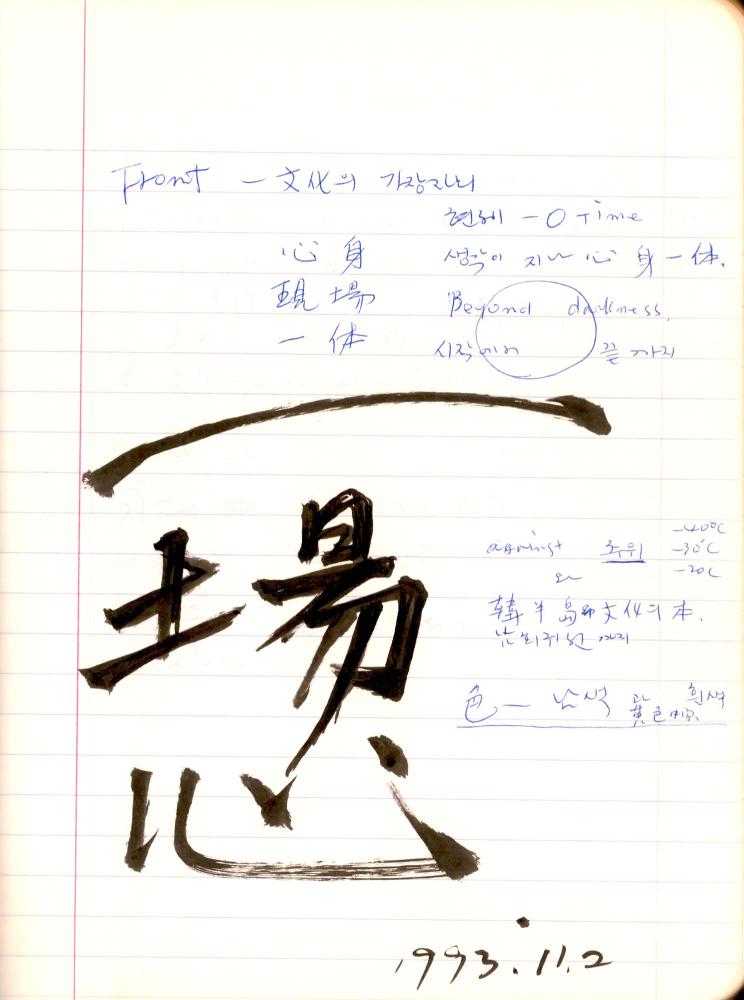 Front — 文化의 가장자리
현재 — 0 Time
心身
생각이 지난 心身一体.
現場
Beyond darkness.
一体
시작에서 끝까지
一
場
心
against 추위
-40°C
-30°C
-20C
와
韓半島와 文化의 本.
까지
色— 남색과 흰색
黃色
1993.11.2